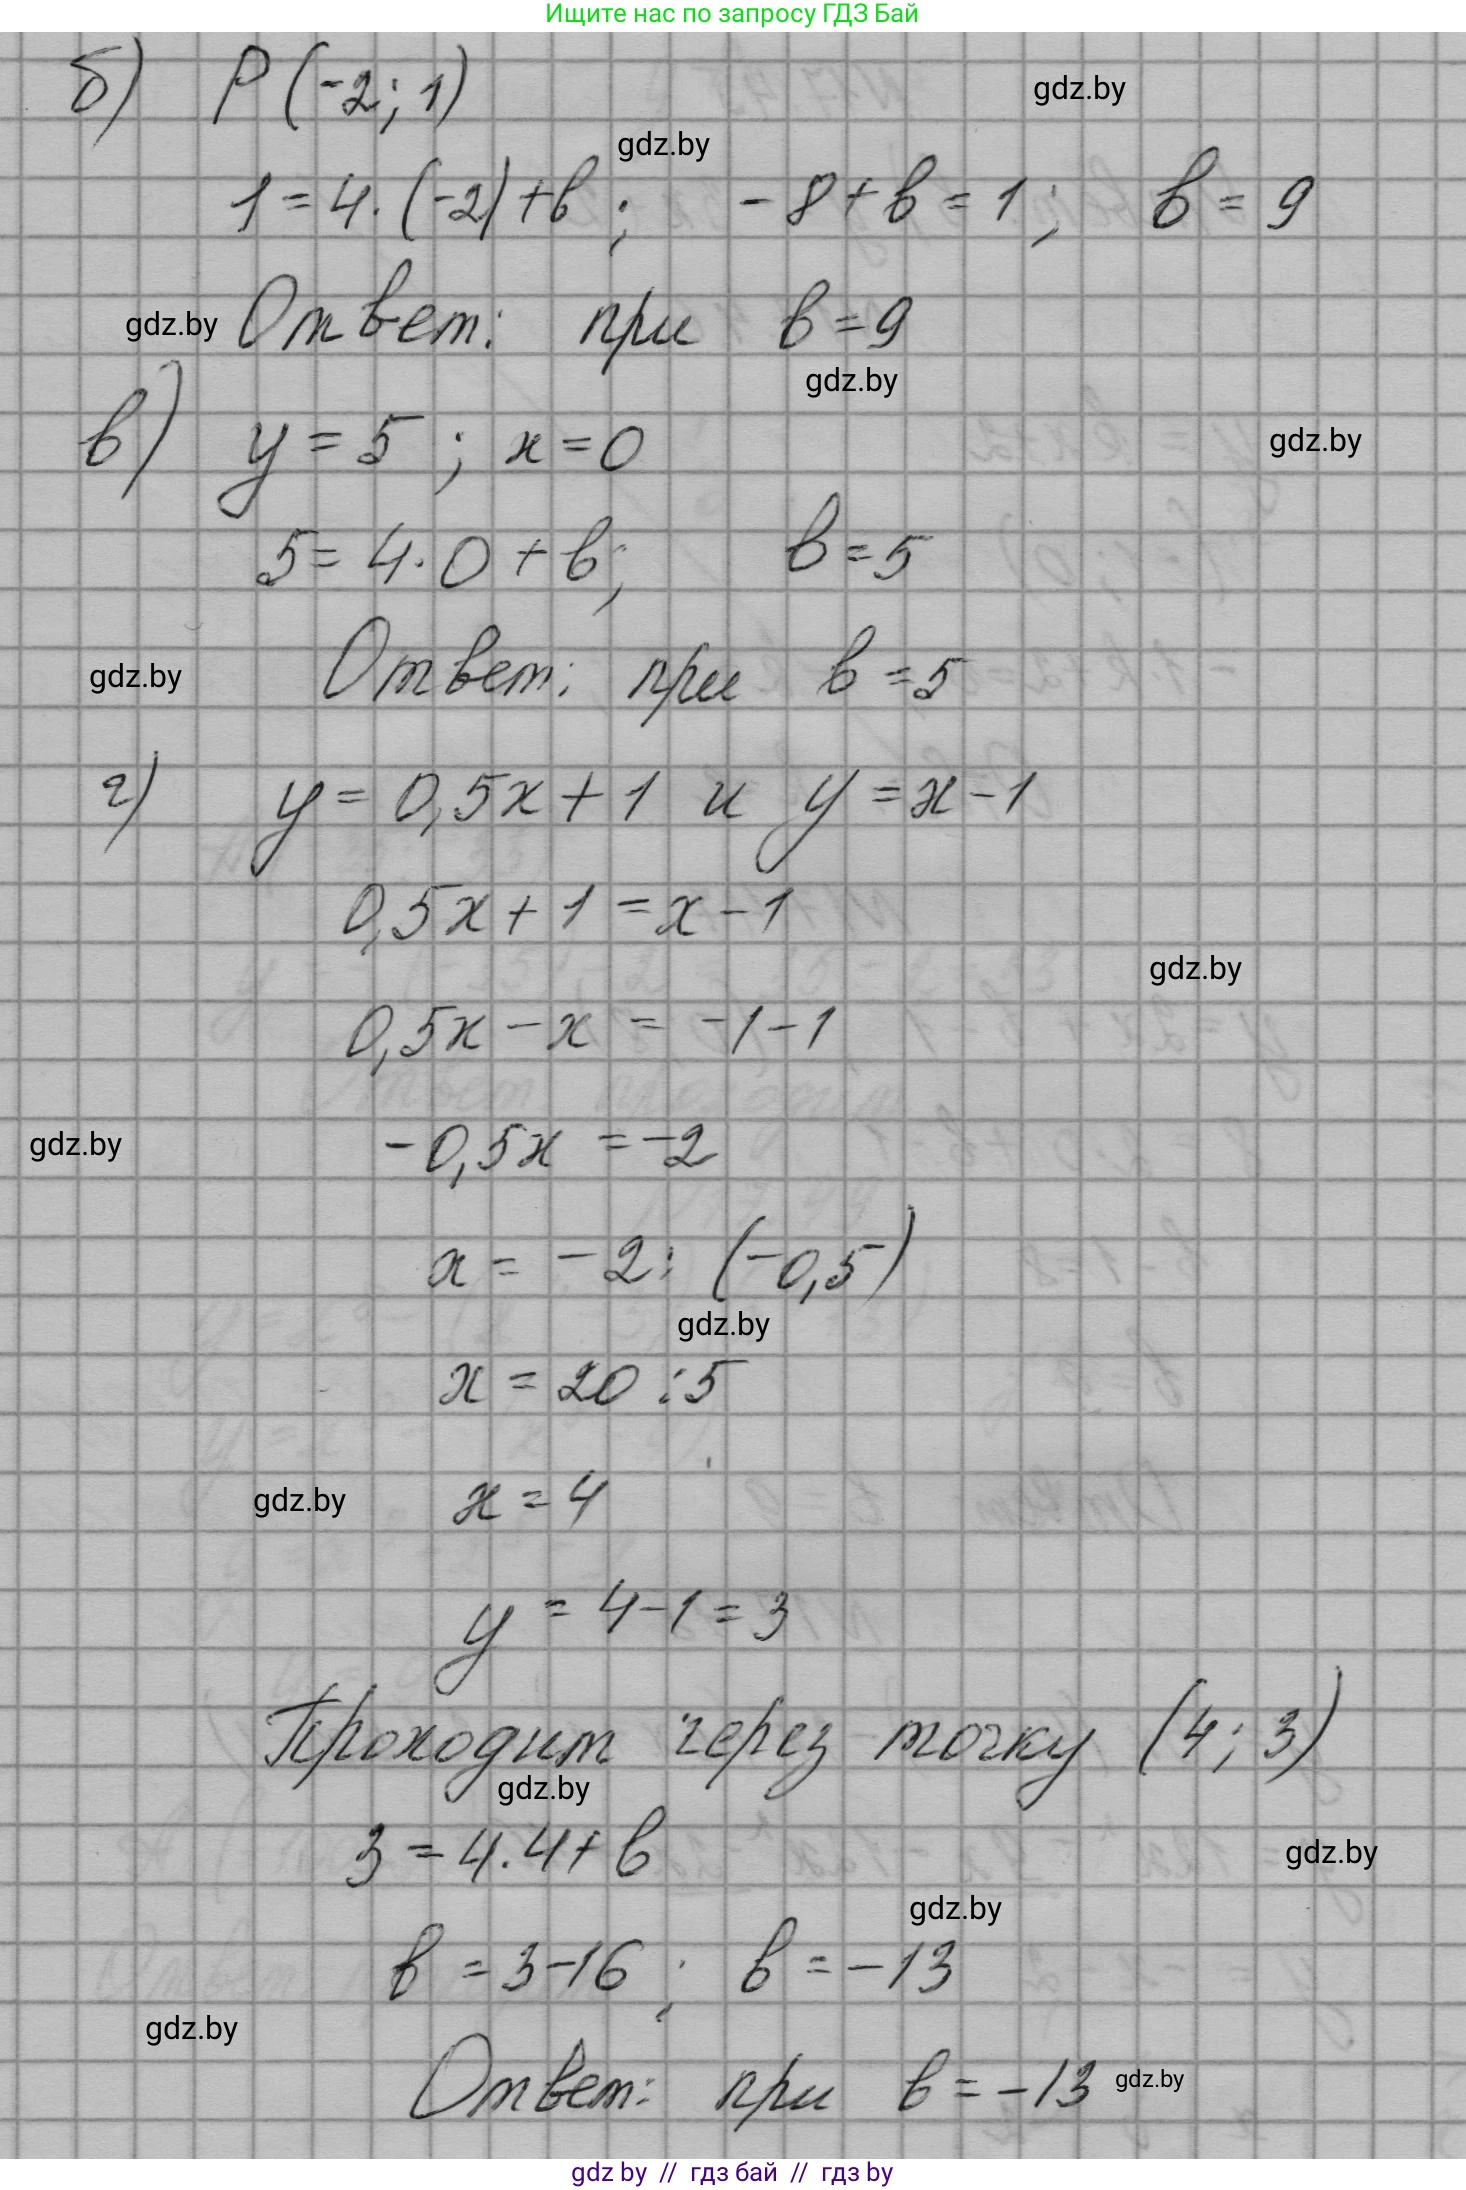 Ищите нас по запросу ГДЗ Бай
б) P(-2; 1)
gdz.by
gdz.by
1=4·(-2)+в; -8+в=1; в=9
gdz.by Ответ: при в=9
gdz.by
в) y=5; x=0
gdz.by
5=4·0+в; в=5
gdz.by Ответ: при в=5
г) y=0,5x+1 и y=x-1
0,5x+1=x-1
gdz.by
0,5x-x = -1-1
gdz.by -0,5x = -2
x = -2:(-0,5)
gdz.by
x = 20:5
gdz.by x=4
y = 4-1=3
Проходит через точку (4; 3)
gdz.by
3=4·4+в
gdz.by
gdz.by
в=3-16; в=-13
gdz.by
Ответ: при в=-13 gdz.by
gdz by // гдз бай // гдз by